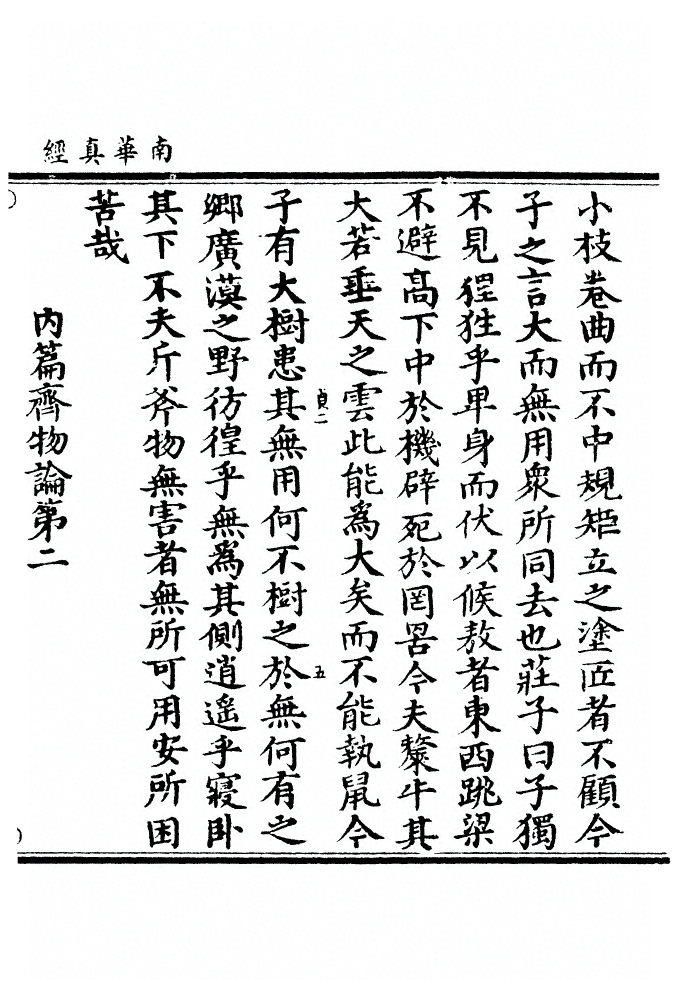 南華真經
小枝卷曲而不中規矩立之塗匠者不顧今
子之言大而無用衆所同去也莊子曰子獨
不見狸狌乎卑身而伏以候敖者東西跳梁
不避高下中於機辟死於罔罟今夫斄牛其
大若垂天之雲此能為大矣而不能執鼠今
子有大樹患其無用何不樹之於無何有之
貞二
五
鄉廣漠之野彷徨乎無為其側逍遙乎寢卧
其下不夭斤斧物無害者無所可用安所困
苦哉
内篇齊物論第二